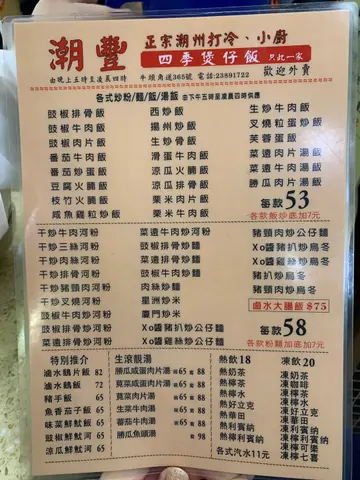 潮豐
正宗潮州打冷、小廚
四季煲仔飯 只此一家
由晚上五時至凌晨四時
牛頭角道365號 電話:23891722
歡迎外賣
各式炒粉/麵/飯/湯飯 由下午五時至凌晨四時供應
豉椒排骨飯
豉椒牛肉飯
豉椒肉片飯
番茄牛肉飯
番茄炒蛋飯
豆腐火腩飯
枝竹火腩飯
咸魚雞粒炒飯
西炒飯
揚州炒飯
生炒骨飯
滑蛋牛肉飯
涼瓜火腩飯
涼瓜排骨飯
栗米肉片飯
栗米牛肉飯
生炒牛肉飯
叉燒粒蛋炒飯
芙蓉蛋飯
菜遠肉片湯飯
菜遠牛肉湯飯
勝瓜肉片湯飯
每款53
各款飯炒底加7元
干炒牛肉河粉
干炒三絲河粉
干炒豬扒河粉
干炒排骨河粉
干炒叉燒河粉
豉椒牛肉炒河粉
豉椒排骨炒河粉
菜遠牛肉炒河粉
豉椒排骨炒麵
豉椒牛肉炒麵
肉絲炒麵
星洲炒米
廈門炒米
Xo醬豬扒炒公仔麵
Xo醬雞絲炒公仔麵
豬頸肉炒公仔麵
Xo醬豬扒炒烏冬
Xo醬雞絲炒烏冬
豬扒炒烏冬
豬頸肉炒烏冬
鹵水大腸飯 $75
每款58
各款粉麵加底加7元
特別推介
滷水鵝片飯 82
滷水鵝飯 72
豬手飯 65
魚香茄子飯 65
味菜鮮魷飯 65
豉椒鮮魷河 65
涼瓜鮮魷飯 65
生滾靚湯
勝瓜咸蛋肉片湯 例65 窩88
莧菜咸蛋肉片湯 例65 窩88
莧菜肉片湯 例65 窩88
生菜牛肉湯 例65 窩88
番茄牛肉湯 例65 窩88
勝瓜魚頭湯 窩98
熱飲18
熱奶茶
熱檸茶
熱檸水
熱好立克
熱華田
熱利賓納
熱檸利賓納
各式汽水11元
凍飲20
凍奶茶
凍咖啡
凍檸茶
凍好立克
凍華田
凍利賓納
凍檸可樂
凍檸七喜